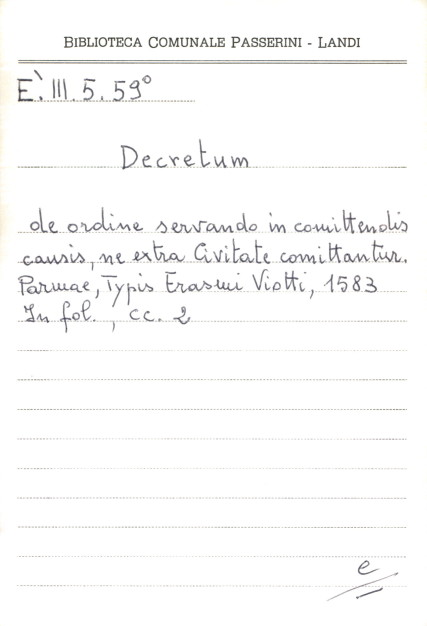 BIBLIOTECA COMUNALE PASSERINI - LANDI
E. III. 5. 59°
Decretum
de ordine servando in comittendis
causis, ne extra Civitate comittantur.
Parmae, Typis Erasmi Viotti, 1583
In fol., cc. 2
e